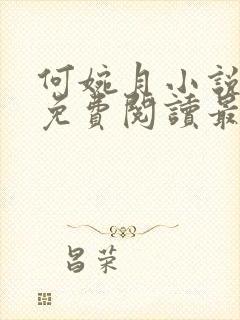 何婉月小說
免費閱讀最
昌荣